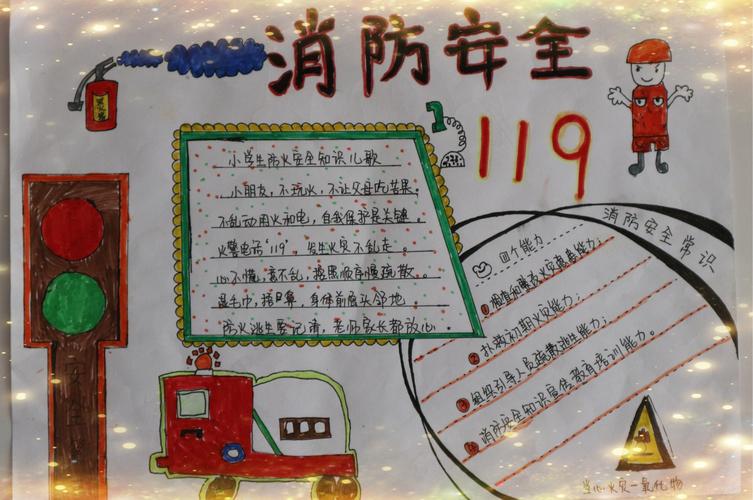 消防安全
119
小学生防火安全知识儿歌
小朋友，不玩火，不让父母吃苦果。
不乱动用火和电，自我保护是关键。
火警电话"119"，发生火灾不乱走。
心不慌，意不乱，按照顺序慢疏散。
湿毛巾，捂口鼻，身体前底头邻地。
防火逃生要记清，老师家长都放心。
消防安全常识
四个能力
1 检查和消除火灾隐患能力；
2 扑救初期火灾能力；
3 组织引导人员疏散逃生能力；
4 消防安全知识宣传教育培训能力。
当心火灾一氧化物